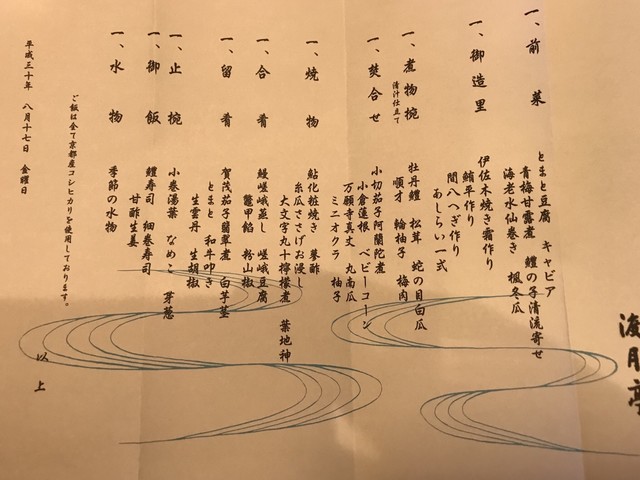 渡月亭
一、前菜
とまと豆腐 キャビア
青梅甘露煮 鱧の子清流寄せ
海老水仙巻き 楓冬瓜
一、御造里
伊佐木焼き霜作り
鮪平作り
間八へぎ作り
あしらい一式
一、煮物椀
清汁仕立て
牡丹鱧 松茸 蛇の目白瓜
順才 輪柚子 梅肉
一、焚合せ
小切茄子阿蘭陀煮
小倉蓮根 ベビーコーン
万願寺真丈 丸南瓜
ミニオクラ 柚子
一、焼物
鮎化粧焼き 蓼酢
糸瓜ささげお浸し
大文字丸十檸檬煮 葉地神
一、合肴
鰻嵯峨蒸し 嵯峨豆腐
鼈甲餡 粉山椒
一、留肴
賀茂茄子翡翠煮 白芋茎
とまと 和牛叩き
生雲丹 生胡椒
一、止椀
小巻湯葉 なめこ 芽葱
一、御飯
鱧寿司 細巻寿司
甘酢生姜
一、水物
季節の水物
ご飯は全て京都産コシヒカリを使用しております。
以上
平成三十年 八月十七日 金曜日